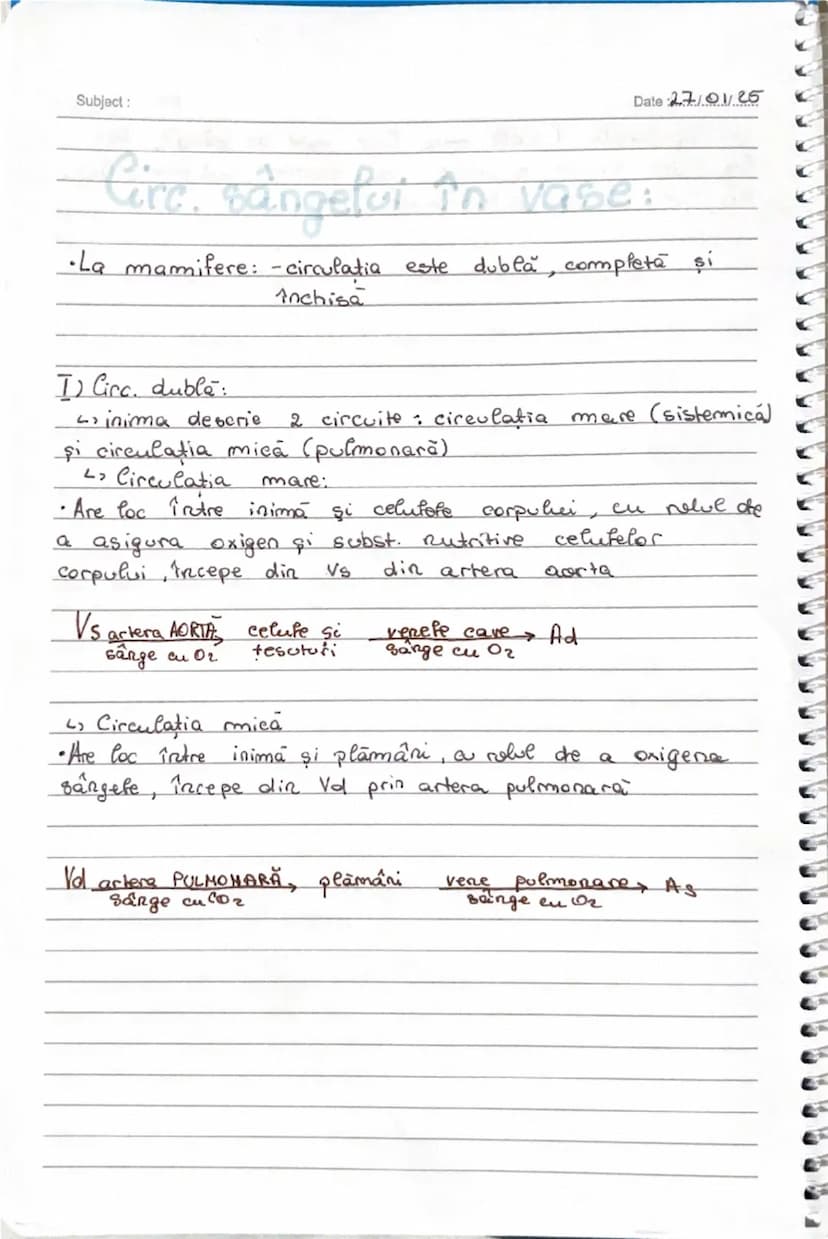 Subject :
Date : 27/01/25
Circ. sângelui în vase:
•La mamifere: - circulația este dublă, completă și
închisă
I) Circ. dublă:
↳ inima descrie 2 circuite : circulația mare (sistemică)
și circulația mică (pulmonară)
↳ Circulația mare:
• Are loc între inimă și celulele corpului, cu rolul de
a asigura oxigen și subst. nutritive celulelor
corpului, începe din Vs din artera aorta
Vs artera AORTĂ, celule și venele cave → Ad
sânge cu O2 țesuturi sânge cu O2
↳ Circulația mică
•Are loc între inimă și plămâni, a rolul de a oxigena
sângele, începe din Vd prin artera pulmonară
Vd artera PULMONARĂ, plămâni vene pulmonare → As
sânge cu CO2 sânge cu O2